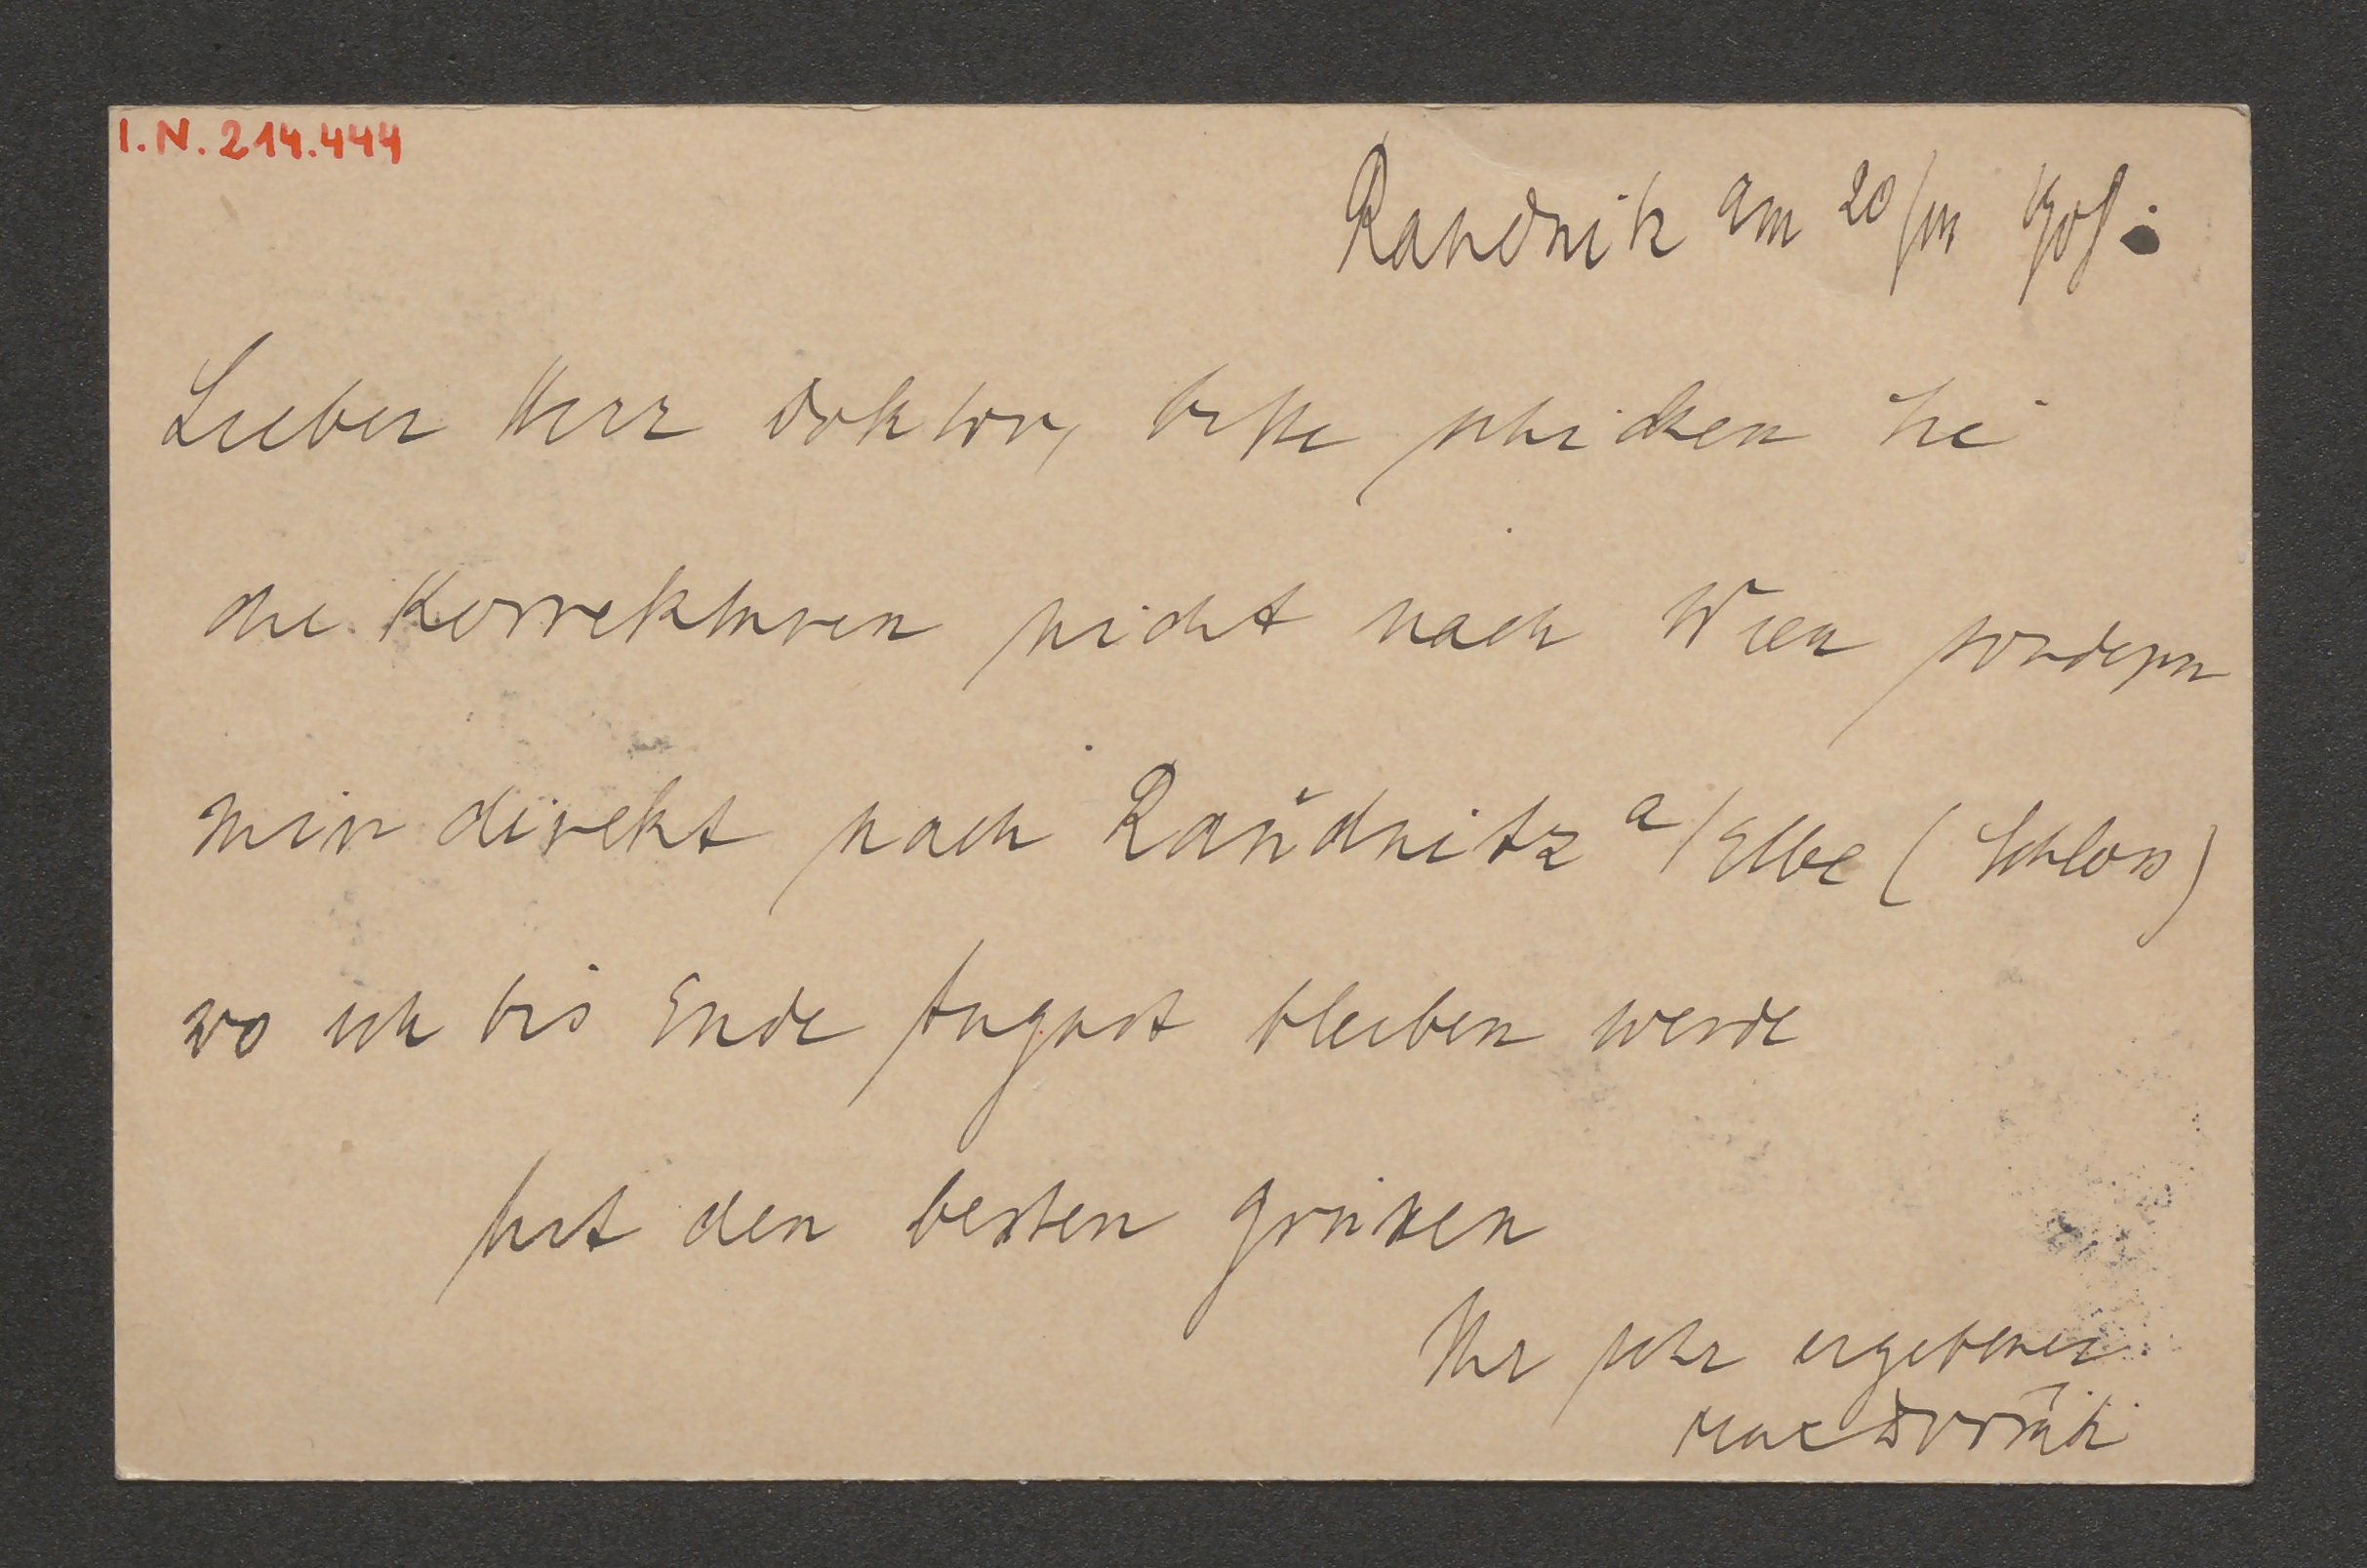 I.N. 214.444
Raudnitz am 20/
Lieber Herr Doktor, bitte schicken Sie
die Korrekturen nicht nach Wien sondern
mir direkt nach Raudnitz a/Elbe (Schloss)
wo ich bis Ende August bleiben werde
Mit den besten Grüssen
Ihr sehr ergebener
Max Dvořák